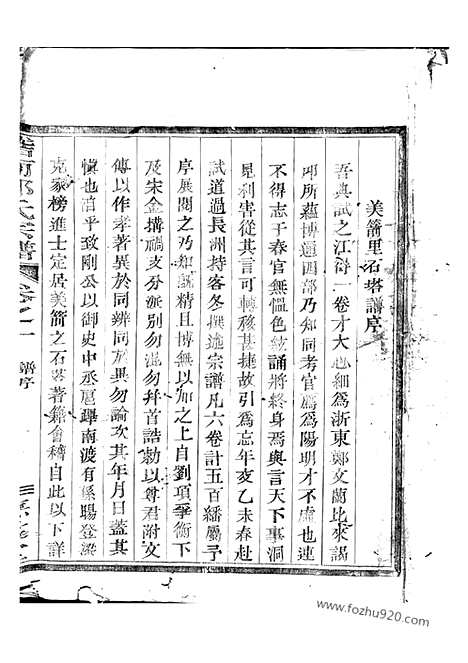 美箭里石塔譜序
吾典試之江得一卷才大心細爲浙東鄭文蘭比來謁
叩所蘊博通四部乃知同考官薦爲陽明才不虛也連
不得志于春官無慍色絃誦將終身焉與言天下事洞
見利害從其言可轉移甚捷故引爲忘年亥乙未春赴
試道過長洲持客冬撰述宗譜凡六卷計五百繙屬予
序展閱之乃知既精且博無以加之上自劉項爭衡下
及宋金搆禍支分派別勿混勿弁首誥勅以尊君附文
傳以作孝著異於同辨同於異勿論次其年月日蓋其
愼也自平致剛公以御史中丞扈蹕南渡有係賜登梁
克家榜進士定居美箭之石塔著籍會稽自此以下詳
氏宗譜
卷之一
譜序
www.fozhu920.com